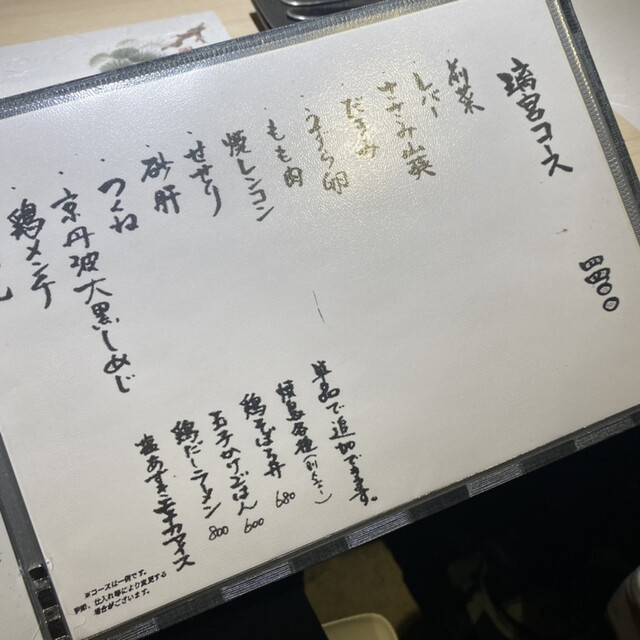 璃宮コース 四四〇〇
前菜
・レバー
・ささみ山葵
・だきみ
・うずら卵
・もも肉
・焼レンコン
・せせり
・砂肝
・つくね
・京丹波大黒しめじ
・鶏メンチ
単品で追加できます。
鶏そぼろ丼 680
玉子かけごはん 600
鶏だしラーメン 800
※コースは一例です。
季節、仕入れ等により変更する
場合がございます。